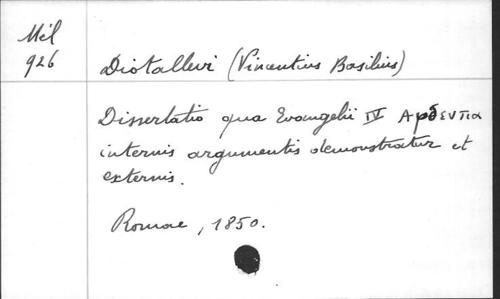 Mél
926
Diotallevi (Vincentius Basilius)
Dissertatio qua Evangelii IV Αρδεντια
internis argumentis demonstratur et
externis.
Romae, 1850.